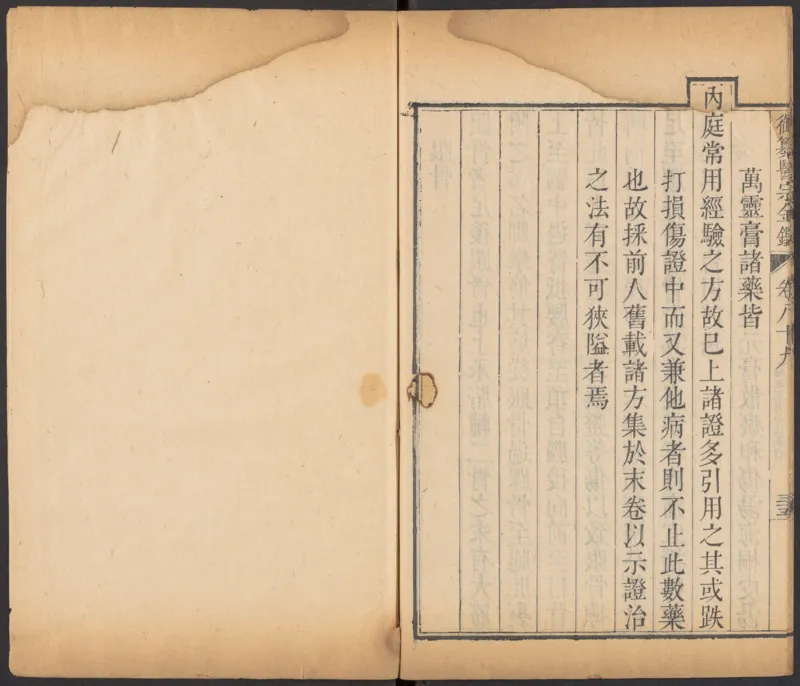 御纂醫宗金鑑 卷八十九 三十五
萬靈膏諸藥皆
內庭常用經驗之方故已上諸證多引用之其或跌
打損傷證中而又兼他病者則不止此數藥
也故採前人舊載諸方集於末卷以示證治
之法有不可狹隘者焉